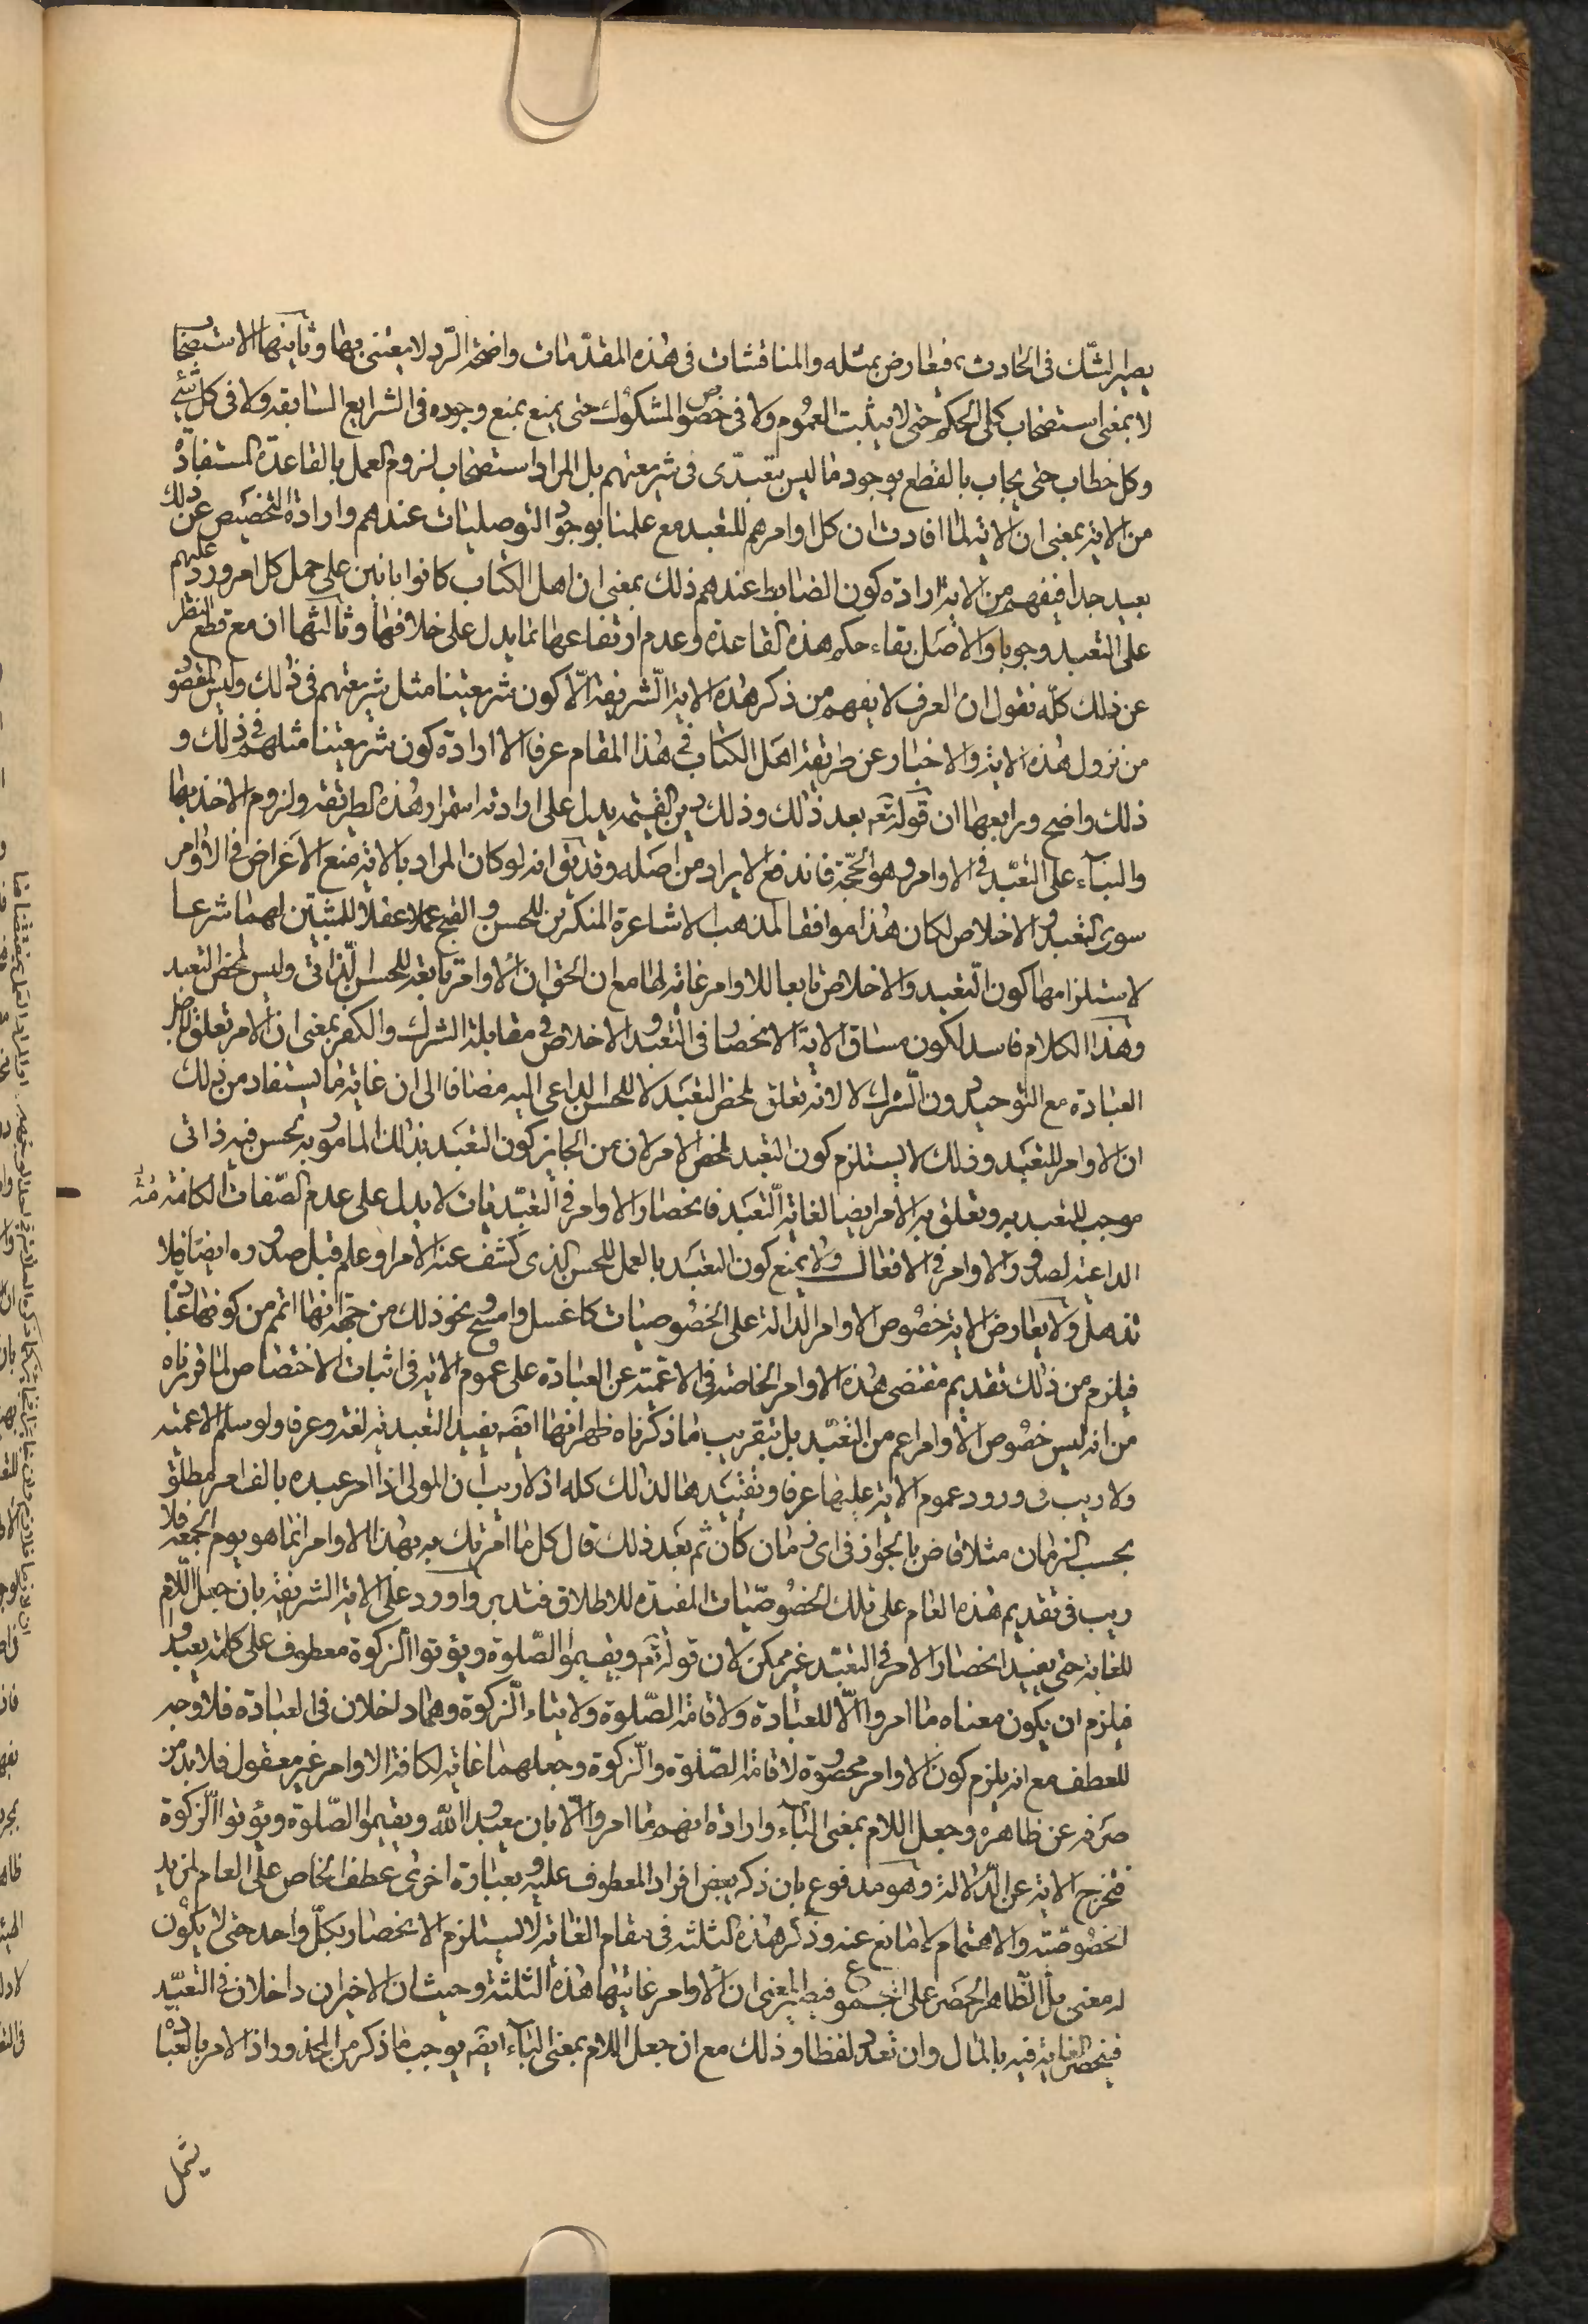 يصير الشك فى الحادث فيعارض بمثله والمناقشات فى هذه المقدّمات واضحة الردّ لا يعتنى بها وثانيها الاستصحاب
لا بمعنى استصحاب كلى الحكم حتى لا يثبت العموم ولا فى خصوص المشكوك حتى يمنع بمنع وجوده فى الشرايع السابقه ولا فى كل شئ
وكل خطاب حتى يجاب بالقطع بوجود ما ليس بتعبدّى فى شريعتهم بل المراد استصحاب لزوم العمل بالقاعدة المستفادة
من الاية بمعنى ان الاية لما افادت ان كل اوامرهم للتعبد مع علمنا بوجود التوصليات عندهم وارادة التخصيص عن ذلك
بعيد جدا فيفهم من الاية ارادة كون الضابط عندهم ذلك بمعنى ان اهل الكتاب كانوا بانين على حمل كل امر ورد عليهم
على التعبد وجوبا والاصل بقاء حكم هذه القاعدة وعدم ارتفاعها بما يدل على خلافها وثالثها ان مع قطع النظر
عن ذلك كلّه نقول ان العرف لا يفهم من ذكر هذه الاية الشريفة الّا كون شريعتنا مثل شريعتهم فى ذلك وليس المقصود
من نزول هذه الاية والاخبار عن طريقة اهل الكتاب فى هذا المقام عرفا الا ارادة كون شريعتنا مثلهم فى ذلك و
ذلك واضح ورابعها ان قوله تعه بعد ذلك وذلك دين القيمة يدل على ارادته استمرار هذه الطريقة ولزوم الاخذ بها
والبناء على التعبد فى الاوامر وهو الحجّة فاندفع الايراد من اصله وقد يق انه لو كان المراد بالاية منع الاغراض فى الاوامر
سوى التعبد والاخلاص لكان هذا موافقا لمذهب الاشاعرة المنكرين للحسن والقبح عملا عقلا للمثبتين لهما شرعا
لاستلزامها كون التعبد والاخلاص تابعا للاوامر غاية لها مع ان الحق ان الاوامر تابعة للحسن الذاتى وليس لمحض التعبد
وهذا الكلام فاسد لكون مساق الاية الانحصار فى التعبد والاخلاص فى مقابلة الشرك والكفر بمعنى ان الامر تعلق لاجل
العبادة مع التوحيد دون الشرك لا لانه تعلق لمحض التعبد لا للحسن الداعى اليه مضافا الى ان غاية ما يستفاد من ذلك
ان الاوامر للتعبد وذلك لا يستلزم كون التعبد لمحض الامر لان من الجايز كون التعبد بذلك المامور به لحسن فيه ذاتى
موجب للتعبد به وتعلق به الامر ايضا لغاية التعبد فانحصار الاوامر فى التعبديات لا يدل على عدم الصفات الكامنة
الداعية لصدور الاوامر فى الافعال ولا يمنع كون التعبد بالعمل للحسن الذى كشف عنه الامر او علم قبل صدوره ايضا فلا
تذهل ولا يعارض الاية خصوص الاوامر الدالة على الخصوصيات كاغسل وامسح ونحو ذلك من جهة انها اتم من كونها عبادة
فيلزم من ذلك تقديم مقتضى هذه الاوامر الخاصة فى الاعمية عن العبادة على عموم الاية فى اثبات الاختصاص لما قررناه
من انه ليس خصوص الاوامر اعم من التعبد بل بتقريب ما ذكرناه ظهر انها ايضه يفيد التعبدية لغة وعرفا ولو سلم الاعمية
ولا ريب فى ورود عموم الاية عليها عرفا وتقييدها لذلك كله اذ لا ريب ان المولى اذا امر عبده بالف امر مطلق
بحسب الزمان مثلا قاض بالجواز فى اى زمان كان ثم بعد ذلك قال كل ما امرتك به بهذا الاوامر انما هو يوم الجمعة فلا
ريب فى تقديم هذه العام على تلك الخصوصيات المفيدة للاطلاق فتدبر واورد على الاية الشريفة بان جعل اللام
للغاية حتى يفيد انحصار الامر فى التعبد غير ممكن لان قوله تعه ويقيموا الصلوة ويؤتوا الزكوة معطوف على كلمة يعبدوا
فيلزم ان يكون معناه ما امروا الّا للعبادة ولاقامة الصلوة ولايتاء الزكوة وهما داخلان فى العبادة فلا وجه
للعطف مع انه يلزم كون الاوامر محصورة لاقامة الصلوة والزكوة وجعلهما غاية لكافة الاوامر غير معقول فلا بد من
صرفه عن ظاهره وجعل اللام بمعنى الباء وارادة انهم ما امروا الّا بان يعبدوا اللّه ويقيموا الصلوة ويؤتوا الزكوة
فتخرج الاية عن الدلالة وهو مدفوع بان ذكر بعض افراد المعطوف عليه وبعبارة اخرى عطف الخاص على العام لمزيد
الخصوصية والاهتمام لا مانع عنه وذكر هذه الثلثة فى مقام الغاية لا يستلزم الانحصار بكل واحد حتى لا يكون
له معنى بل الظاهر الحصر على المجموع فيصير المعنى ان الاوامر غايتها هذه الثلثة وحيث ان الاخيران داخلان فى التعبد
فينحصر الغاية فيه بالمال وان تعدد لفظا وذلك مع ان جعل اللام بمعنى الباء ايضه يوجب ما ذكر من المحذور اذ الامر بالعبادة
يشمل